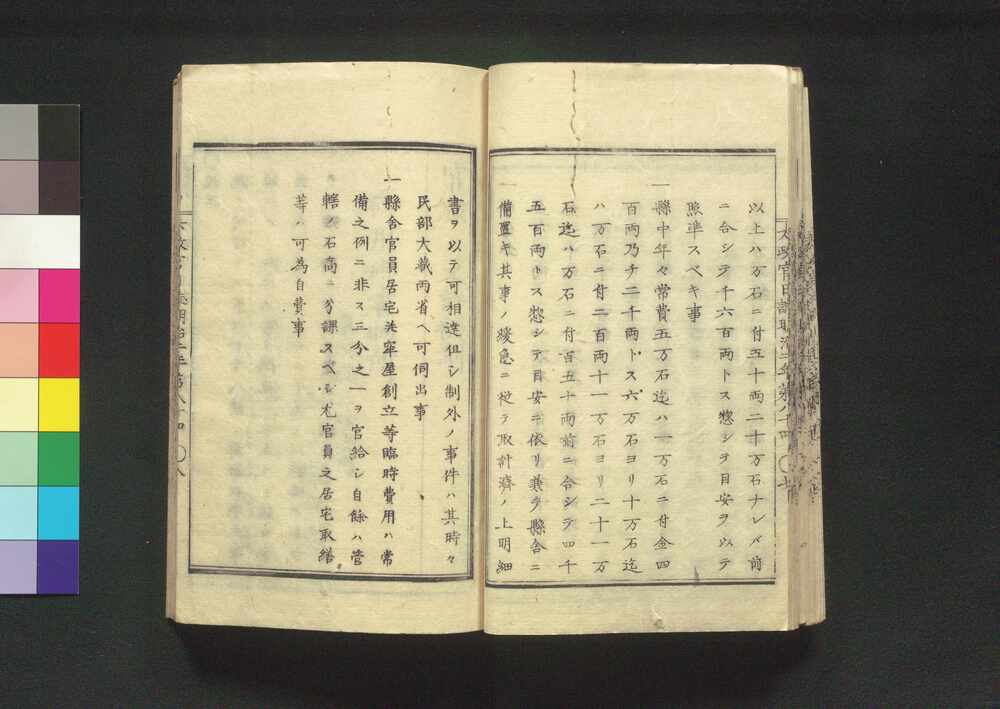 以上ハ万石ニ付五十両二十万石ナレバ前
ニ合シテ千六百両トス惣シテ目安ヲ以テ
照準スベキ事
一縣中年々常費五万石迄ハ一万石ニ付金四
百両乃チ二千両トス六万石ヨリ十万石迄
ハ万石ニ付二百両十一万石ヨリ二十一万
石迄ハ万石ニ付百五十両前ニ合シテ四千
五百両トス惣シテ目安ニ依リ兼テ縣舎ニ
備置キ其事ノ緩急ニ従テ取計済ノ上明細
書ヲ以テ可相達但シ制外ノ事件ハ其時々
民部大蔵両省ヘ可伺出事
一縣舎官員居宅共牢屋創立等臨時費用ハ常
備之例ニ非ス三分之一ヲ官給シ自餘ハ管
轄ノ石高ニ分課スベシ尤官員之居宅取繕
等ハ可為自費事